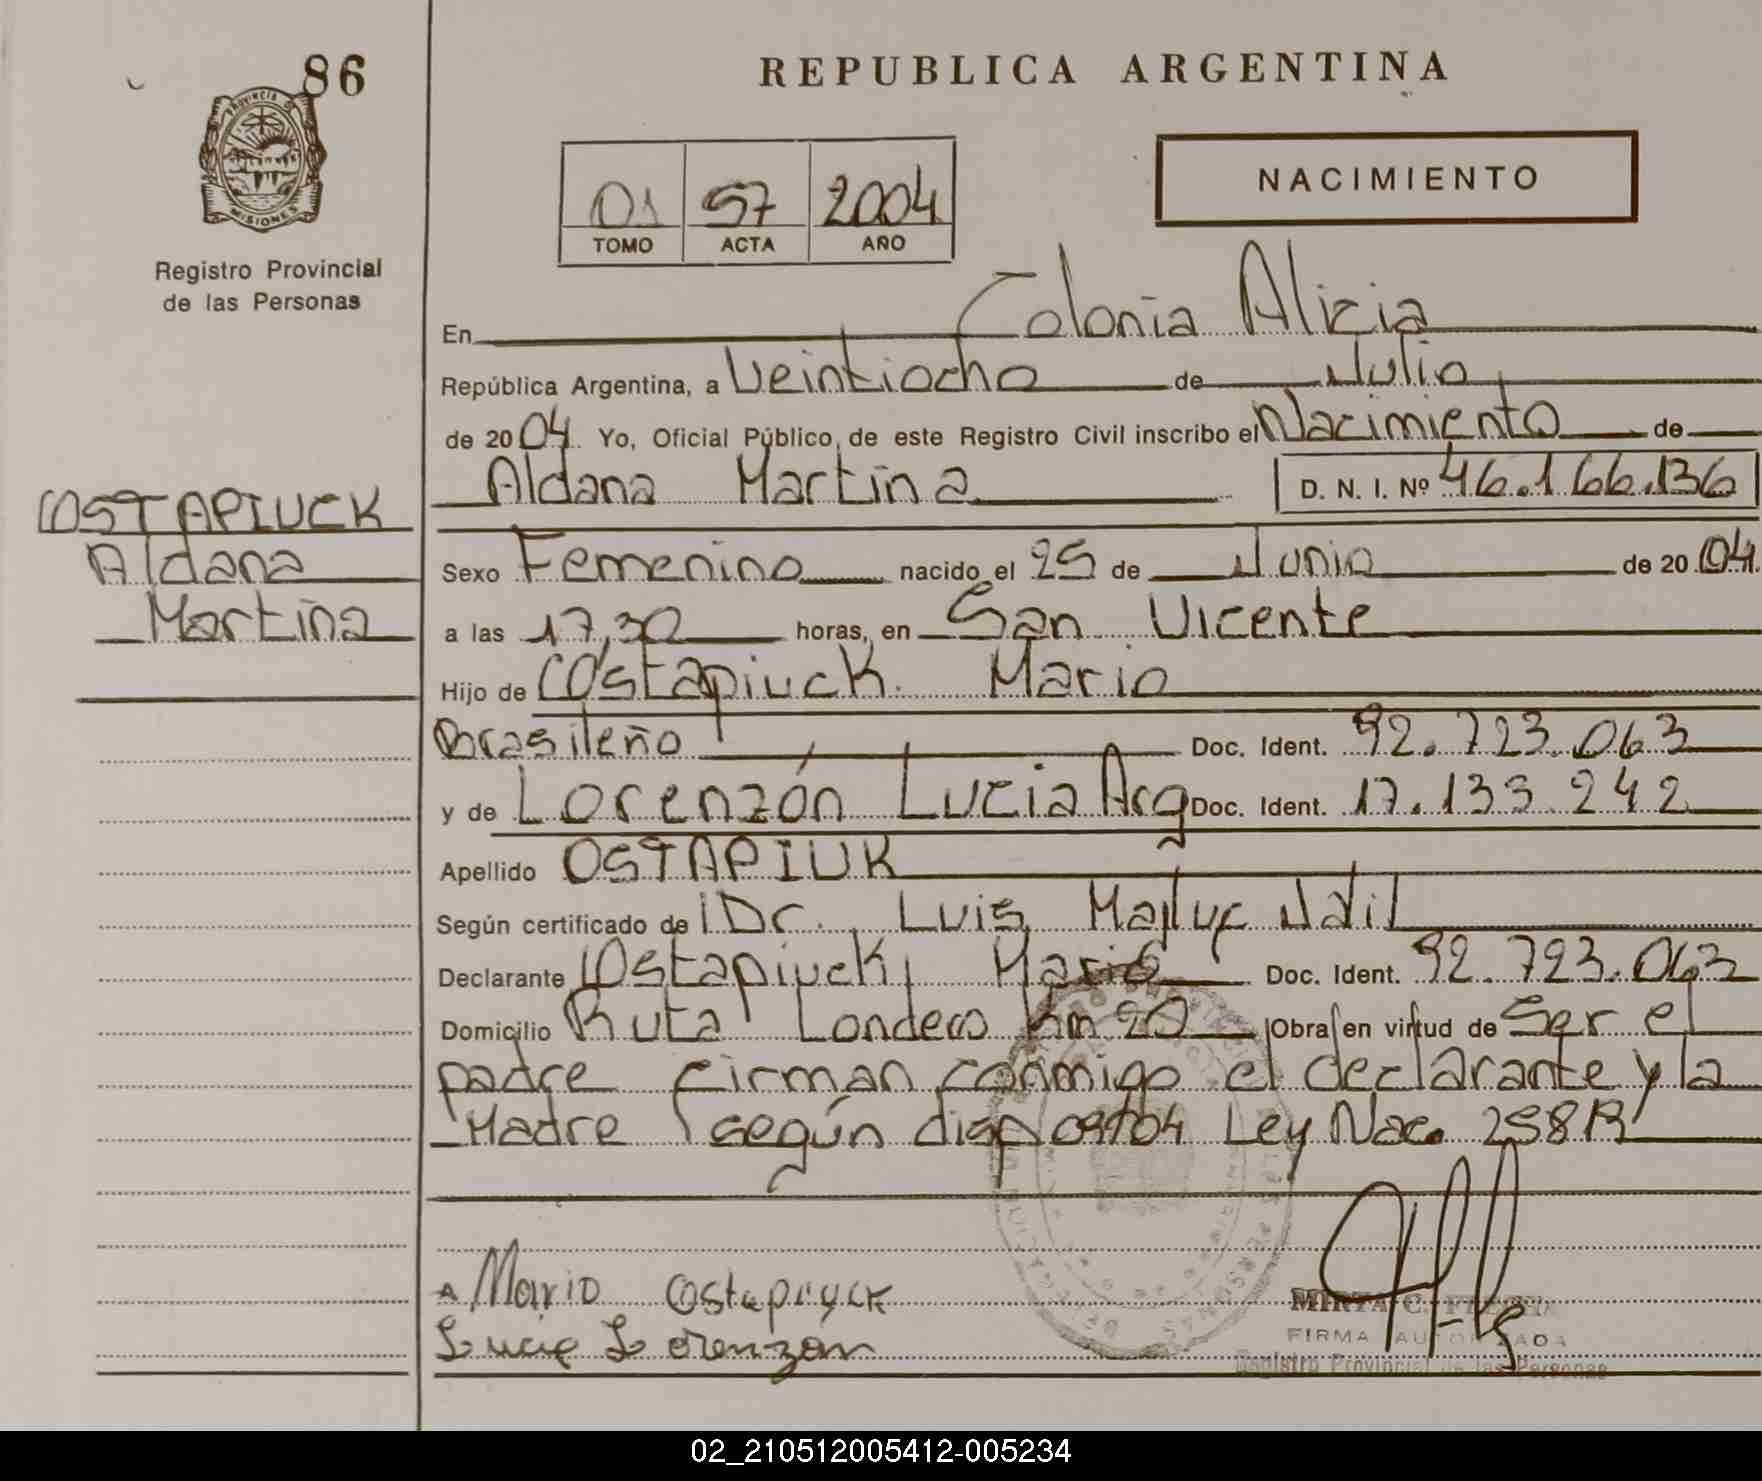 86
PROVINCIA DE
MISIONES
Registro Provincial
de las Personas
COSTAPIUCK
Aldana
Martina
REPUBLICA ARGENTINA
NACIMIENTO
01 57 2004
TOMO ACTA AÑO
En Colonia Alicia
República Argentina, a Veintiocho de Julio
de 2004 Yo, Oficial Público, de este Registro Civil inscribo el Nacimiento de
Aldana Martina D. N. I. Nº 46.166.136
Sexo Femenino nacido el 25 de Junio de 2004
a las 17,30 horas, en San Vicente
Hijo de COstapiuck Mario
Brasileño Doc. Ident. 92.723.063
y de Lorenzón Lucia Arg Doc. Ident. 17.133 242
Apellido OSTAPIUK
Según certificado de Dr. Luis Jalil
Declarante COstapiuck, Mario Doc. Ident. 92.723.063
Domicilio Ruta Londero Km 20 Obra en virtud de Ser el
padre firman conmigo el declarante y la
Madre según disp 09/04 Ley Nac.
Mario Costapiyck
Lucia Lorenzon
MIRTA C.
FIRMA AUTORIZADA
Registro Provincial de las Personas
02_210512005412-005234